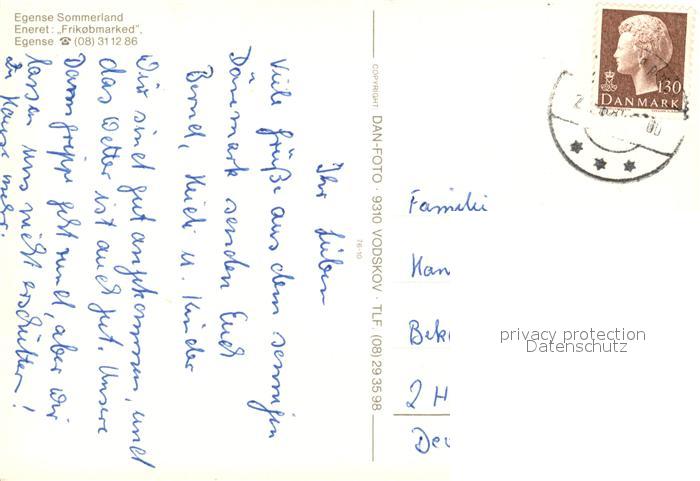 Egense Sommerland
Eneret: „Frikøbmarked",
Egense ☎ (08) 31 12 86
Ihr Lieben
Viele Grüße aus dem sonnigen
Dänemark senden Euch
Bernd, Heidi u. Kinder
Wir sind gut angekommen, und
das Wetter ist auch gut. Unsere
Darmgrippe geht rund, aber wir
lassen uns nicht erschüttern!
Zu Hause mehr.
COPYRIGHT DAN-FOTO · 9310 VODSKOV · TLF. (08) 29 35 98
76-10
130
DANMARK
Familie
Han
Bek
2 H
Deu
privacy protection
Datenschutz